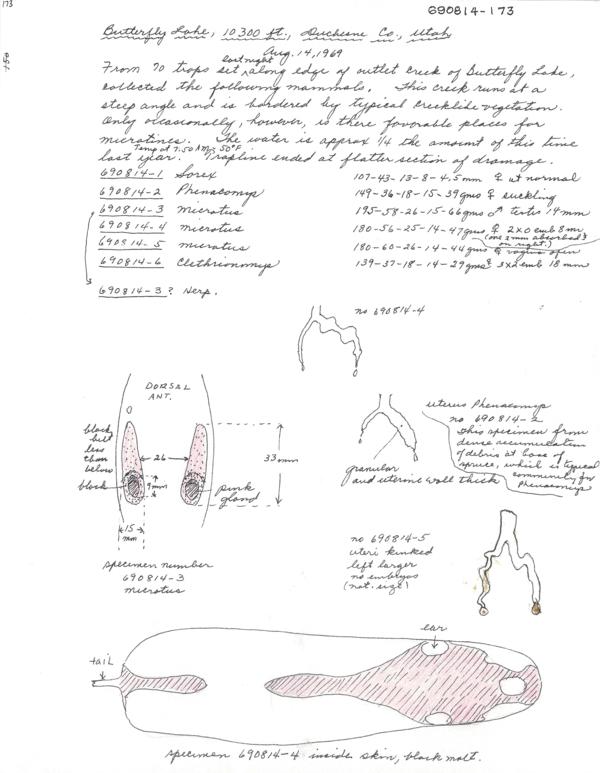 173
690814-173
150
Butterfly Lake, 10300 ft., Duchesne Co., Utah
Aug. 14, 1969
From 70 traps set last night along edge of outlet creek of Butterfly Lake,
collected the following mammals. This creek runs at a
steep angle and is bordered by typical creeklike vegetation.
Only occasionally, however, is there favorable places for
microtines. The water is approx 1/4 the amount of this time
Temp at 7:50 AM = 50°F.
last year. Trapline ended at flatter section of drainage.
690814-1 Sorex 107-43-13-8-4.5mm ♀ ut normal
690814-2 Phenacomys 149-36-18-15-39gms ♀ suckling
690814-3 Microtus 195-58-26-15-66gms ♂ testis 14mm
690814-4 microtus 180-56-25-14-47gms ♀ 2x0 emb 8mm
(one 3mm absorbed?
on right.)
690814-5 microtus 180-60-26-14-44gms ♀ vagina open
690814-6 Clethrionomys 139-37-18-14-29gms ♀ 3x2 emb 18mm
690814-3? Herp.
no 690814-4
DORSAL
ANT.
black
but
less
than
below
26
33mm
black
9mm
pink
gland
15
mm
specimen number
690814-3
microtus
uterus Phenacomys
no 690814-2
This specimen from
dense accumulation
of debris at base of
spruce, which is typical
community for
Phenacomys
granular
and uterine wall thick
no 690814-5
uteri kinked
left larger
no embryos
(nat. size)
ear
tail
specimen 690814-4 inside skin, black molt.